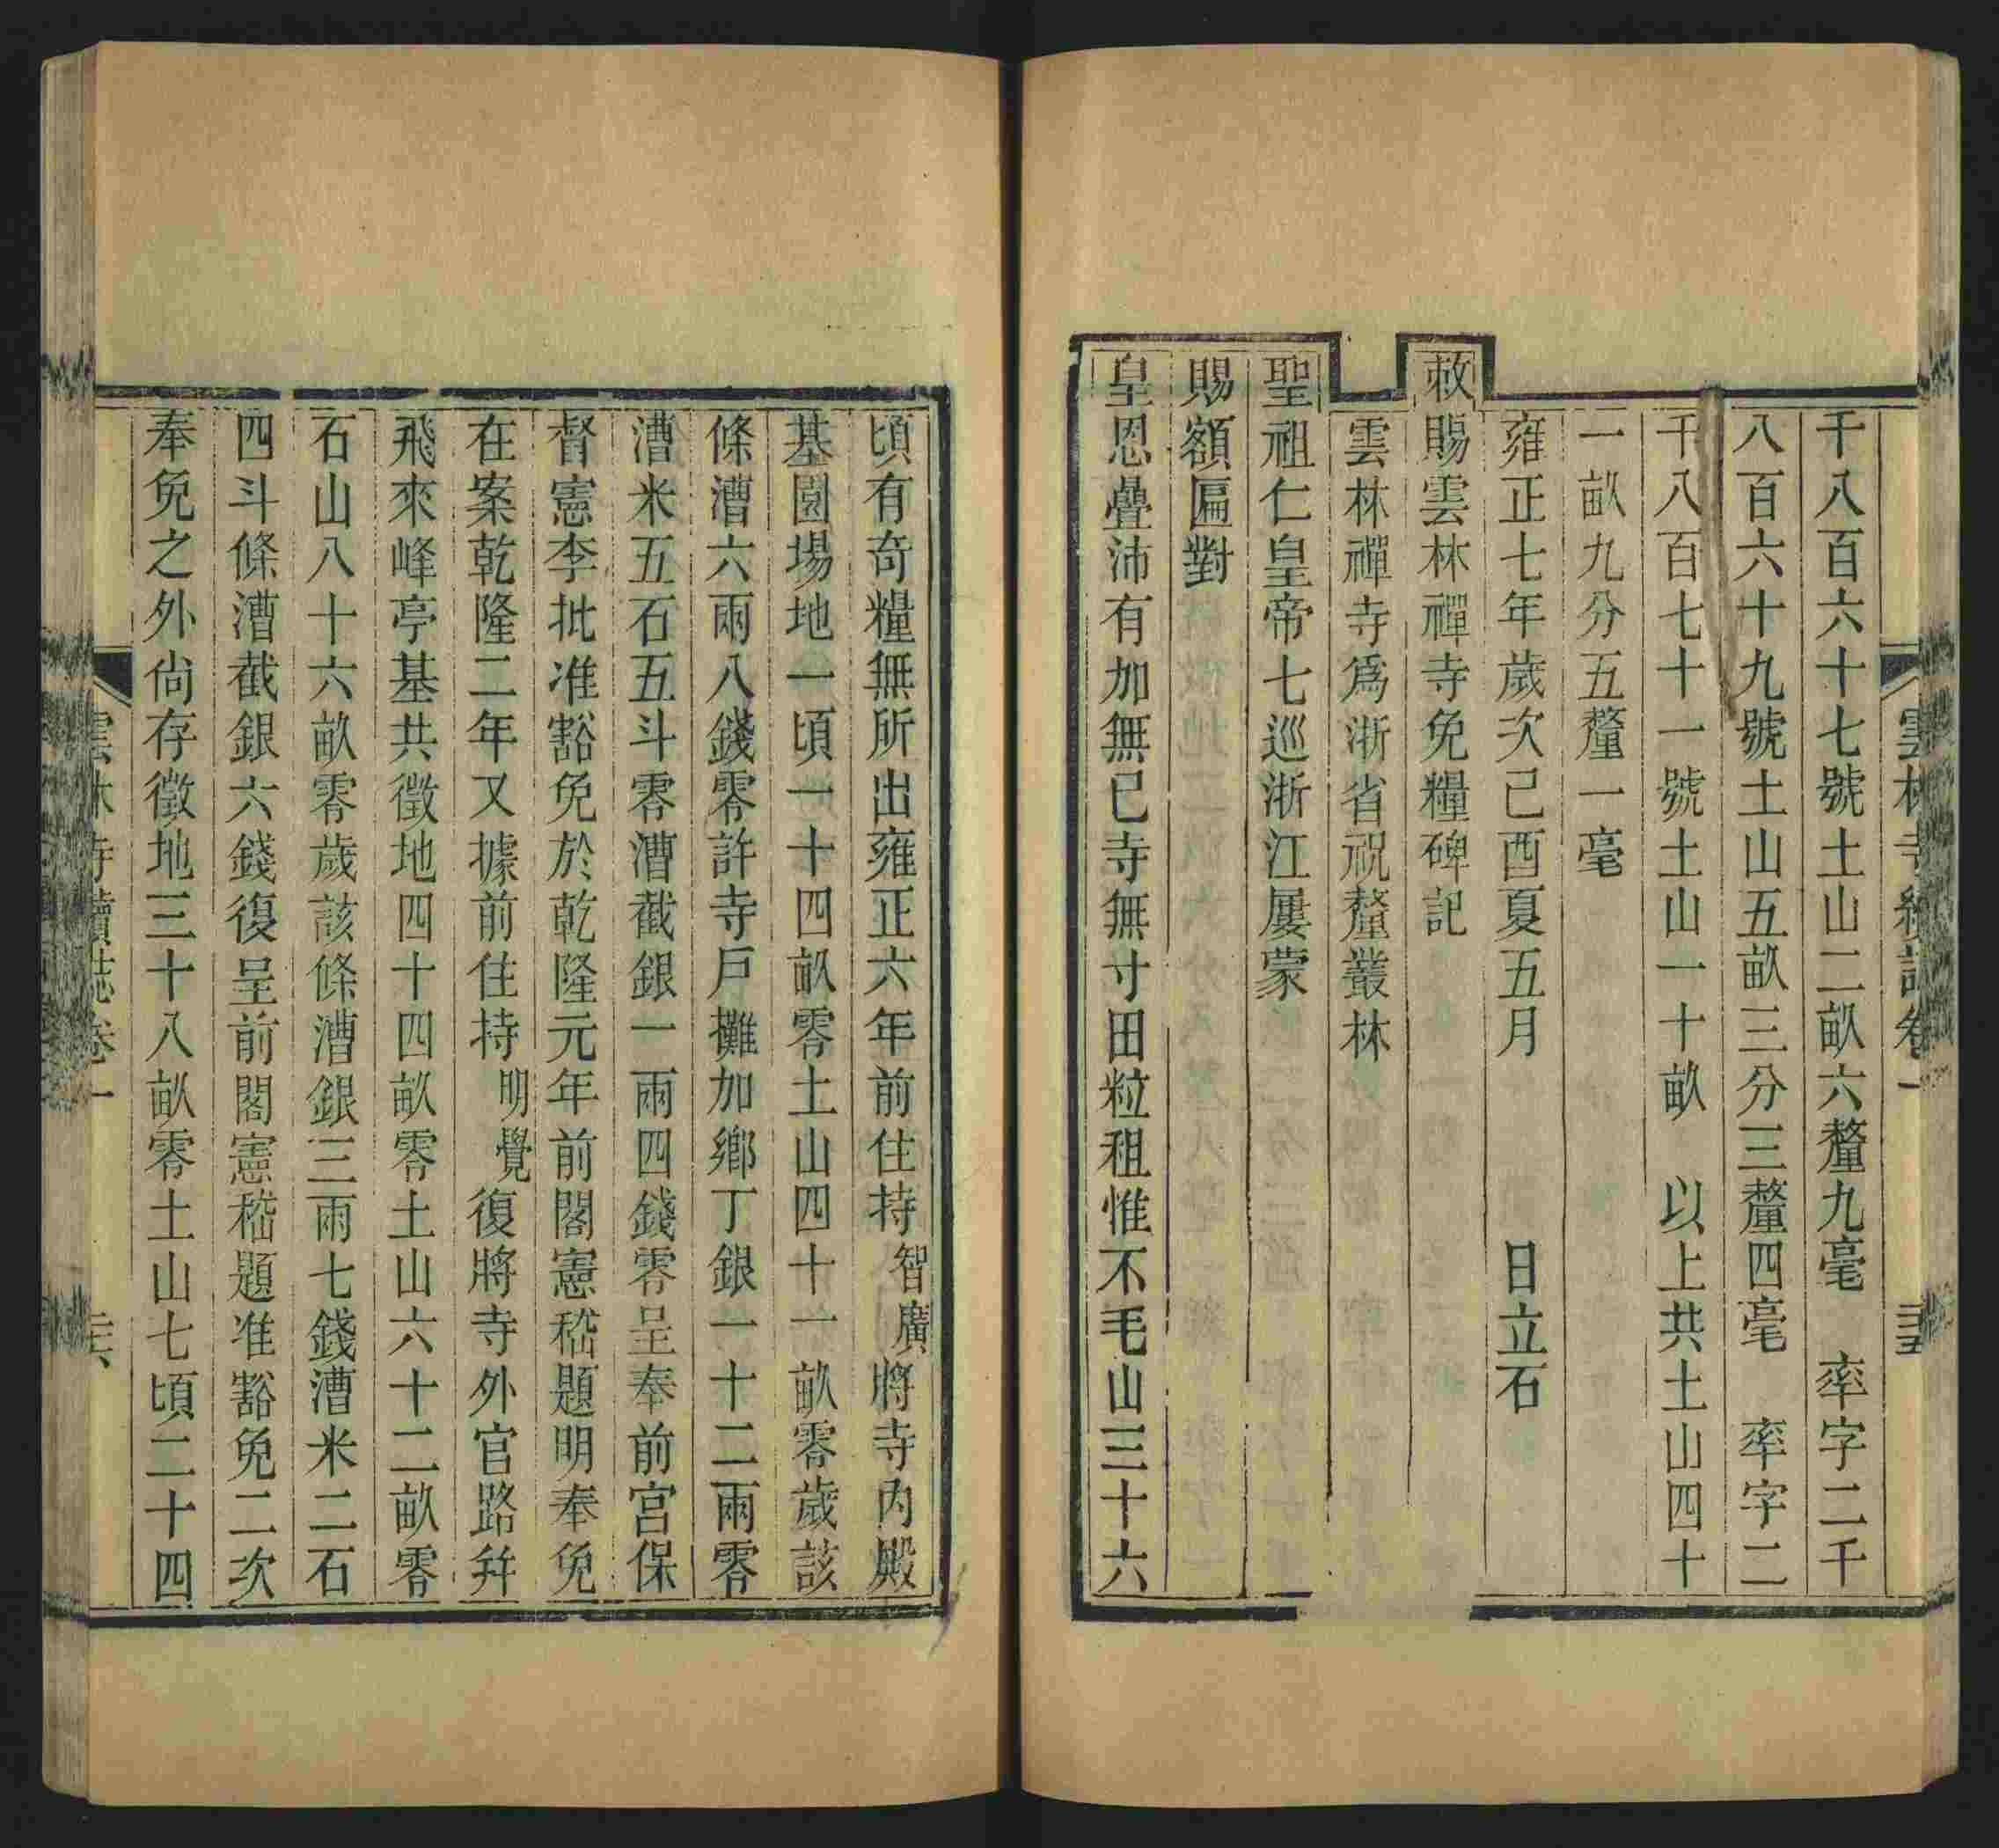 雲林寺續誌卷一 三五
千八百六十七號土山二畝六釐九毫 率字二千
八百六十九號土山五畝三分三釐四毫 率字二
千八百七十一號土山一十畝 以上共土山四十
一畝九分五釐一毫
雍正七年歲次己酉夏五月 日立石
敕賜雲林禪寺免糧碑記
雲林禪寺為浙省祝釐叢林
聖祖仁皇帝七巡浙江屢蒙
賜額匾對
皇恩疊沛有加無已寺無寸田粒租惟不毛山三十六
頃有奇糧無所出雍正六年前住持智廣將寺內殿
基園場地一頃一十四畝零土山四十一畝零歲該
條漕六兩八錢零許寺戶攤加鄉丁銀一十二兩零
漕米五石五斗零漕截銀一兩四錢零呈奉前宮保
督憲李批准豁免於乾隆元年前閣憲嵇題明奉免
在案乾隆二年又據前住持明覺復將寺外官路并
飛來峰亭基共徵地四十四畝零土山六十二畝零
石山八十六畝零歲該條漕銀三兩七錢漕米二石
四斗條漕截銀六錢復呈前閣憲嵇題准豁免二次
奉免之外尚存徵地三十八畝零土山七頃二十四
雲林寺續誌卷一 三六